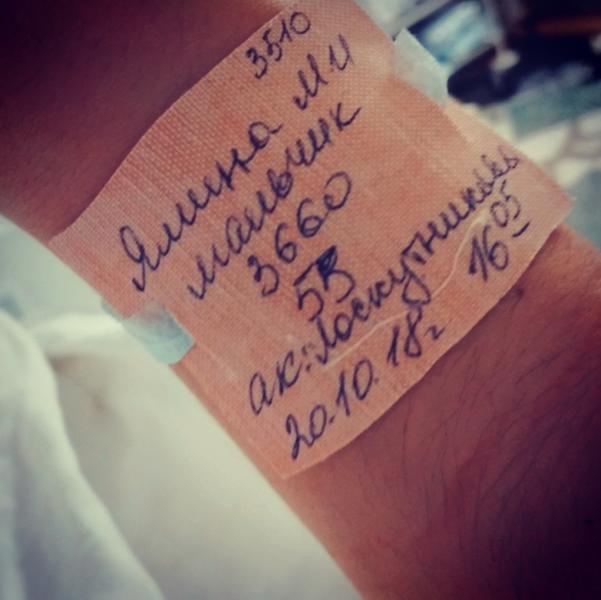 3510
Ялина М И
мальчик
3660
53
ак: Лоскутникова
20.10.18г 16 05